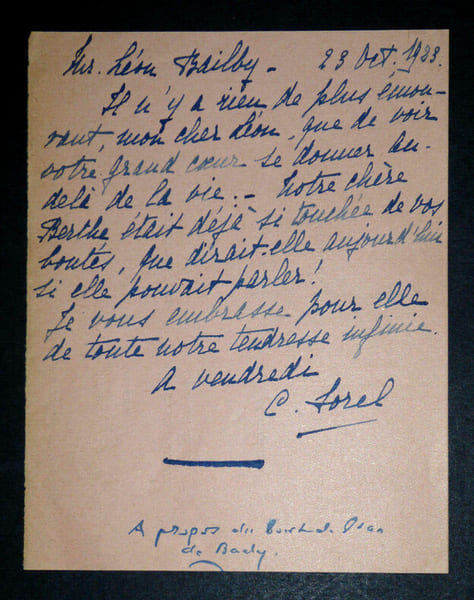 Mr. Léon Bailby - 23 Oct. 1933.
Il n'y a rien de plus émou-
vant, mon cher Léon, que de voir
votre grand cœur se donner au-
delà de la vie. - Notre chère
Berthe était déjà si touchée de vos
bontés, que dirait-elle aujourd'hui
si elle pouvait parler!
Je vous embrasse pour elle
de toute notre tendresse infinie.
A vendredi
C. Sorel
A propos du
de Bady.